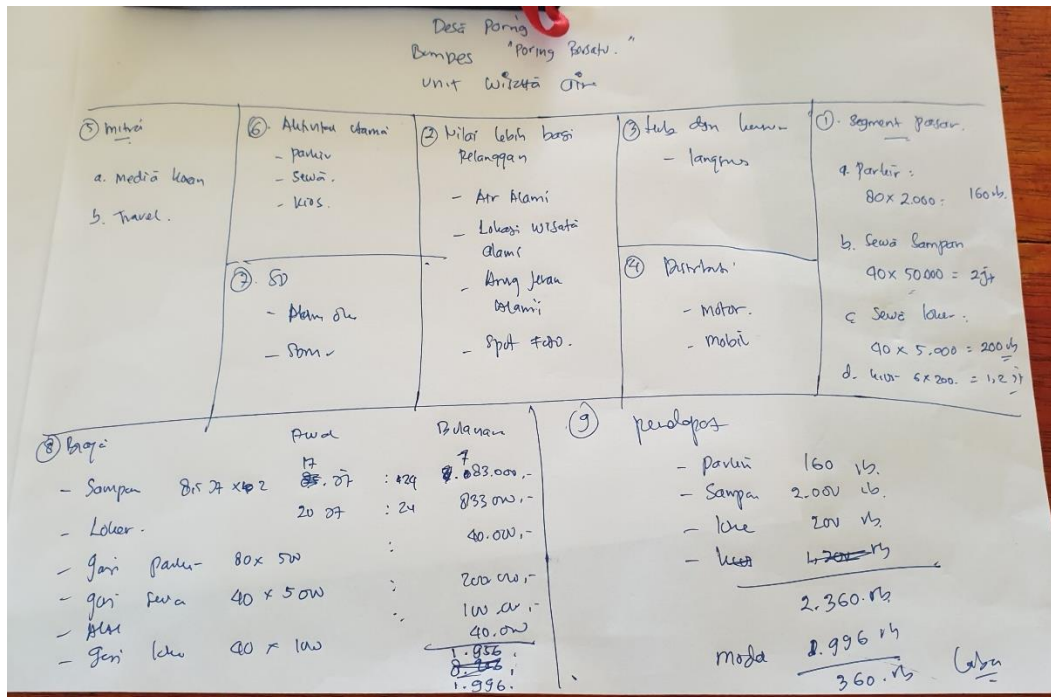 Desa Poring
Bumdes "Poring Bersatu."
Unit Wisata Air
⑤ Mitra
a. Media
b. Travel.
⑥. Aktivitas utama
- parkir
- Sewa.
- Kios.
② Nilai lebih bagi
Pelanggan
- Air Alami
- Lokasi wisata
alami
- Arung Jeram
Alami
- Spot Foto.
③ Hub dgn
- langsung
①. Segment pasar.
a. Parkir :
80 x 2.000 : 160 rb.
b. Sewa Sampan
40 x 50.000 = 2 jt
c Sewa loker :
40 x 5.000 = 200 rb
d. kios 6 x 200. = 1,2 jt
⑦. SD
-
-
④ Distribusi
- Motor.
- Mobil
⑧ Biaya
Awal Bulanan
- Sampan 8,5 Jt x 2 17 Jt : 24 7 83.000,-
- Loker. 20 Jt : 24 833 000,-
- Gaji parkir 80 x 500 : 40.000,-
- gaji Sewa 40 x 5000 : 200 000,-
- Alat 100 000,-
- Gaji loker 40 x 1000 40.000
1.956
1.996.
⑨ pendapat
- Parkir 160 rb.
- Sampan 2.000 rb.
- loke 200 rb.
- kios 1,200 rb
2.360. rb
Modal 1.996 rb
360. rb Laba